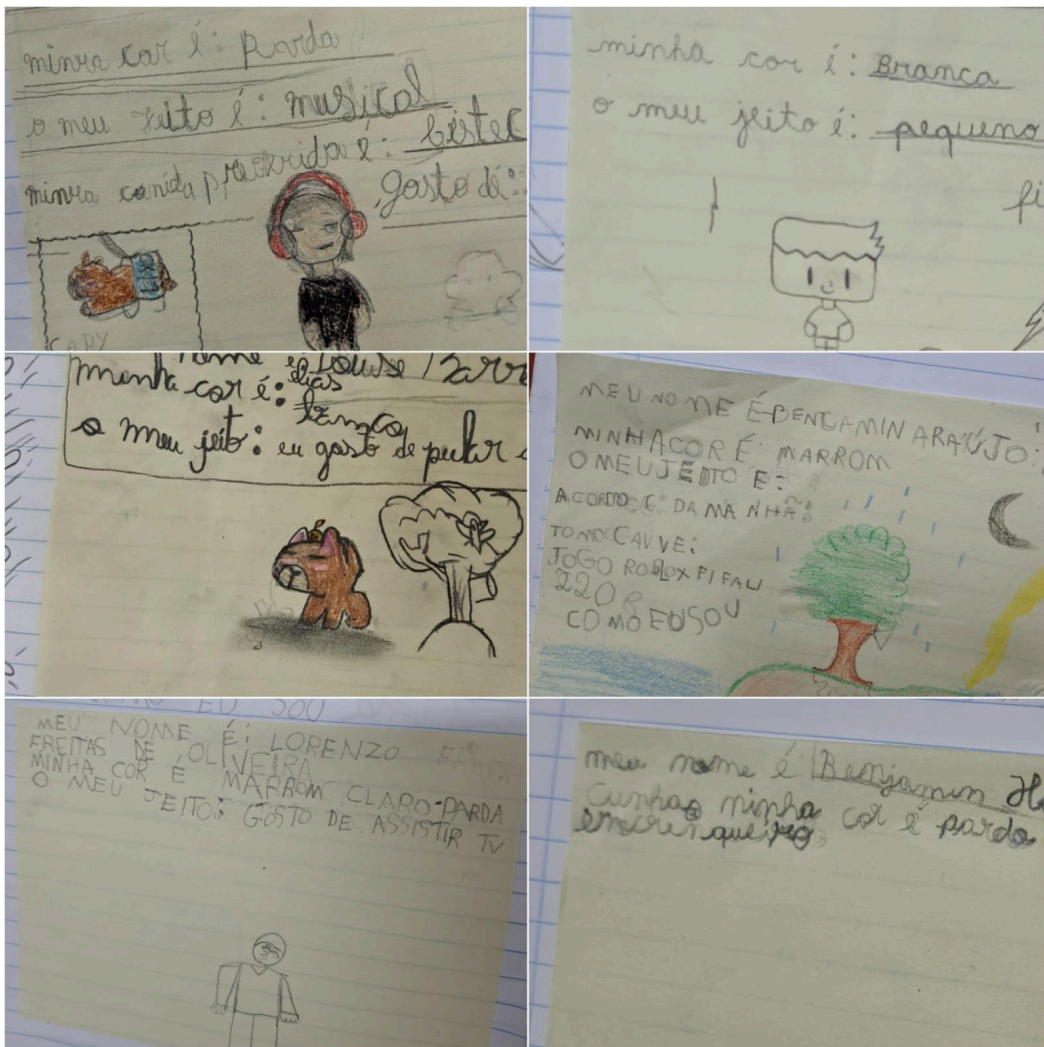 minha cor é: Parda
o meu jeito é: musical
minha comida preferida é: bistec
gosto de:
CAPY
minha cor é: Branca
o meu jeito é: pequeno
fi
nome é Louise Barr
Dias
menha cor é: branca
o meu jeito: eu gosto de pular e
MEU NOME É BENGAMIN ARAÚJO:
MINHA COR É: MARROM
O MEU JEITO E:
ACORDO 6 DA MANHÃ:
TOMO CAVVE:
JOGO ROBLOX FIFAU
220
COMO EU SOU
EU SOU
MEU NOME É: LORENZO
FREITAS DE OLIVEIRA
MINHA COR É MARROM CLARO-PARDA
O MEU JEITO: GOSTO DE ASSISTIR TV
meu nome é Benjamin
Cunha minha cor é pardo
encrinqueiro